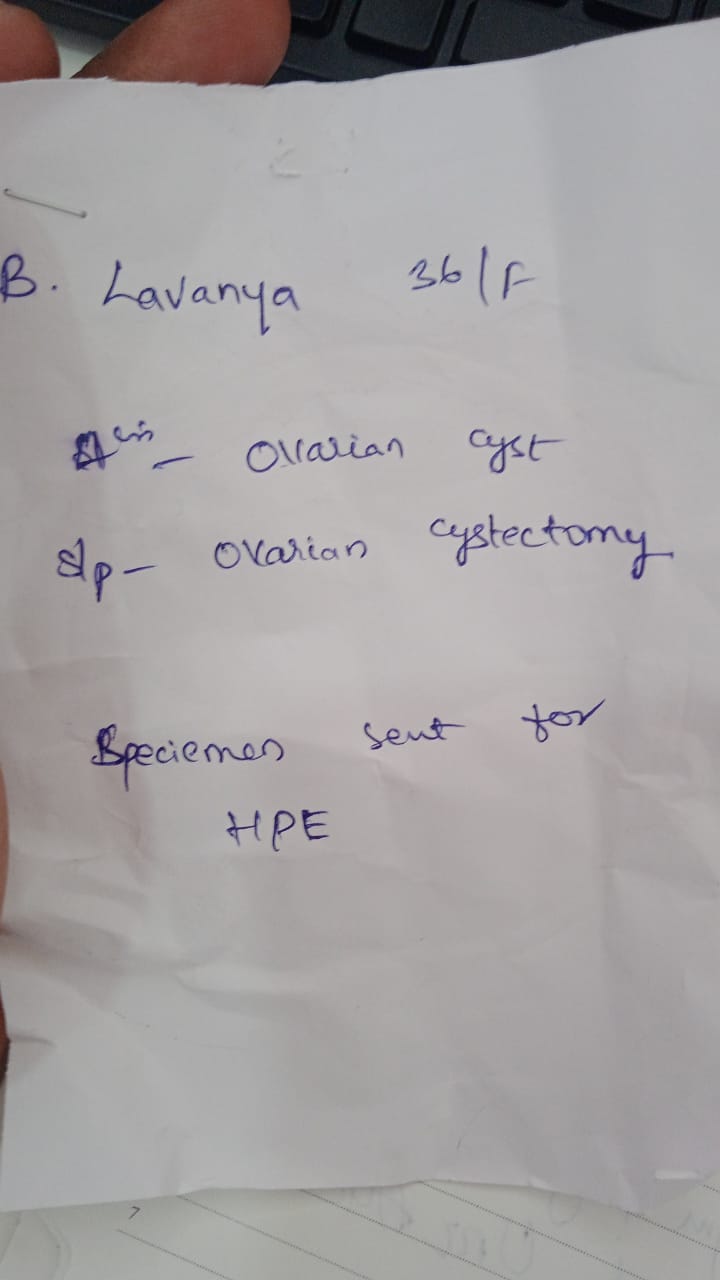 B. Lavanya 36/F
- Ovarian cyst
S/p - Ovarian cystectomy
Speciemen sent for
HPE